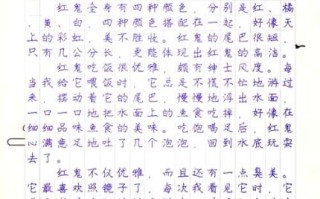 红鬼全身有四种颜色，分别是红、橘
、黄、白，四种颜色搭配在一起，好像天
上的彩虹，美不胜收。红鬼的尾巴很短，
只有几公分长，更能体现出红鬼的高洁。
红鬼吃饭很优雅，颇有绅士风度。每
当我给它喂饭时，它总是不慌不忙地游过
来，摆动着它的尾巴，慢慢地浮出水面，
一口一口地把水面上的鱼食吃掉，好像在
细细品味鱼食的美味。吃饱喝足后，红鬼
心满意足地吐了几个泡泡，回到水底玩
去了。
红鬼不仅优雅，而且还有一点臭美。
它最喜欢照镜子了，每次我看见它时，它